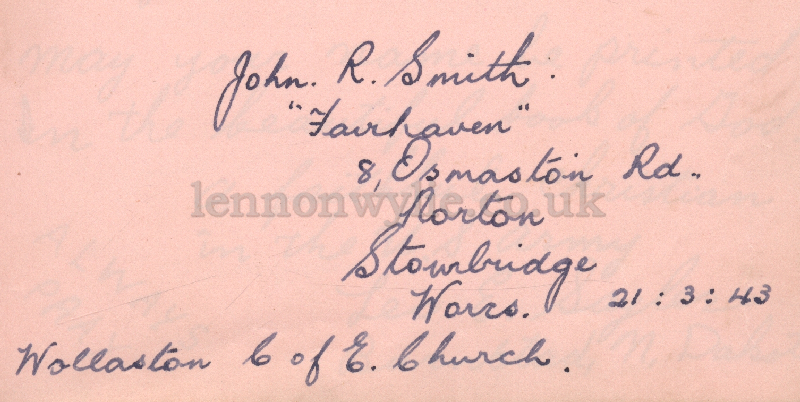 John. R. Smith.
"Fairhaven"
8, Osmaston Rd..
Norton
Stourbridge
Worcs. 21 : 3 : 43
Wollaston C of E. Church.
lennonwylie.co.uk